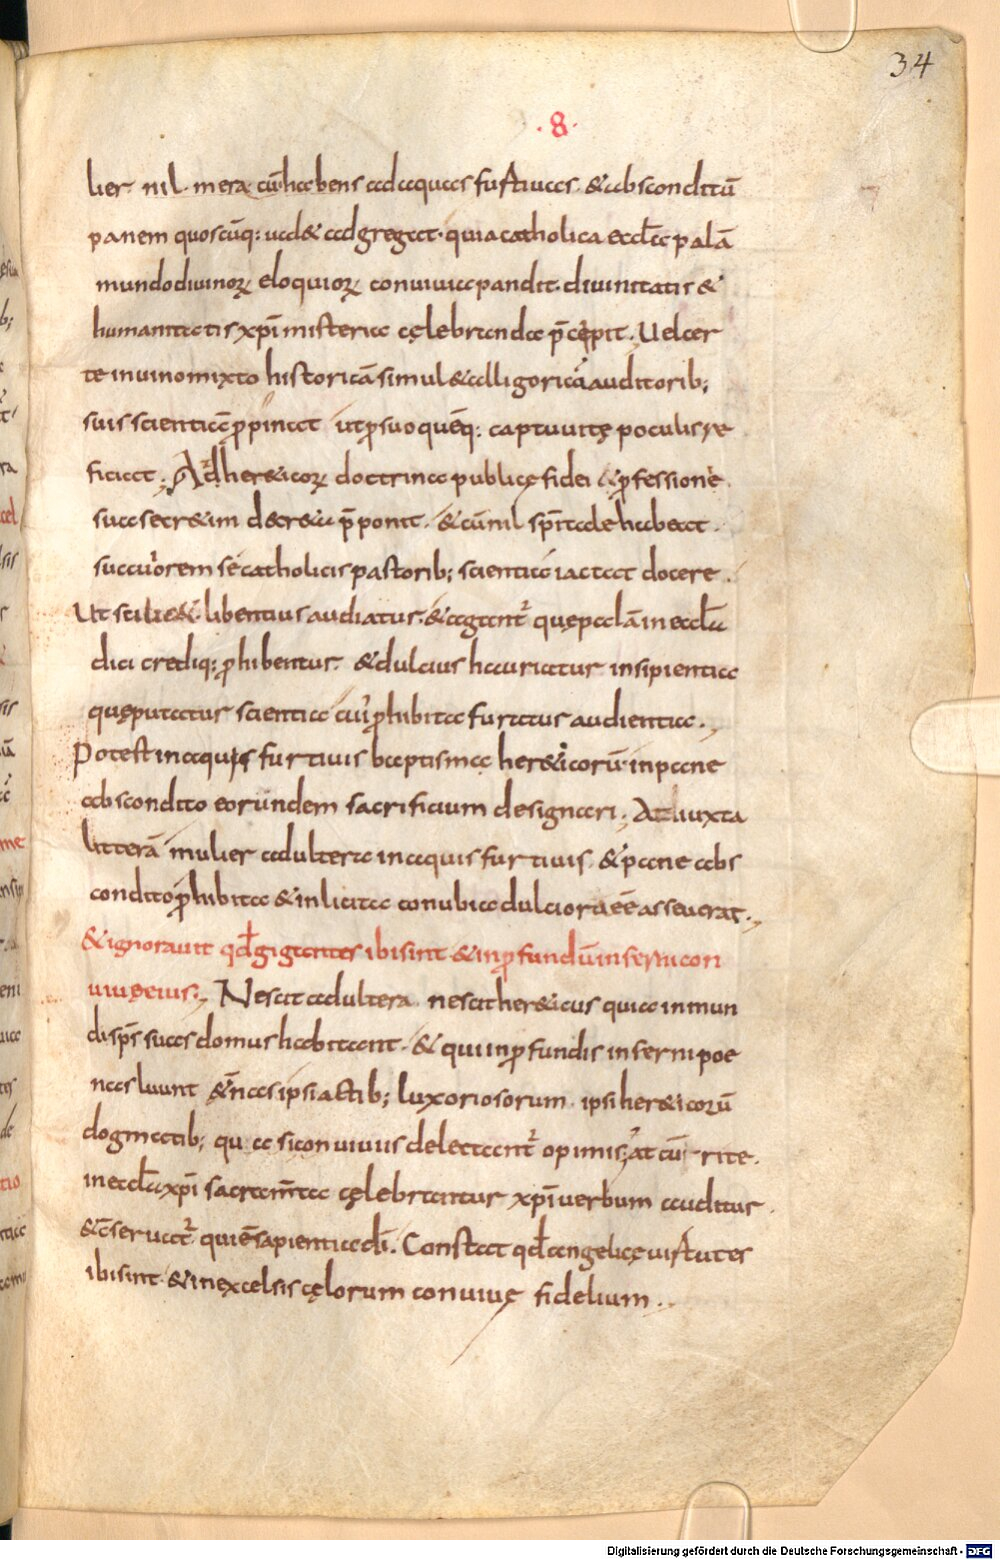 34
·8·
lier nil mera cū habens ad aquas furtiuas & absconditū
panem quoscūq: uad& adgregat· quia catholica eccła palā
mundo diuinoꝝ eloquioꝝ conuiuia pandit· diuinitatis &
humanitatis xpī misteria cęlebranda p̄cępit· Uel cer
te in uino mixto historicā simul & alligoricā auditorib;
suis scientiā ꝓpinat ut ꝑ suo quēq: captu uitę poculis re
ficiat; Ad her&icoꝝ doctrina publicę fidei & ꝓfessione
sua secr&im decr&a p̄ponit· & cū nil sp̄itale habeat
suauiorem se catholicis pastorib; scientiā iactat docere·
Ut scili& libentius audiatur· & agant̄ quę palā in eccła
dici crediq; ꝓhibentur· & dulcius hauriatur insipientia
quę putatur scientia cui ꝓhibita furatur audientia·,
Potest in aquis furtiuis baptisma her&icorū· in pane
abscondito eorundem sacrificium designari; At iuxta
litterā mulier adultera in aquis furtiuis & pane abs
condito ꝓhibita & inlicita conubia dulciora ēē asseuerat·,
& ignorauit qđ gigantes ibi sint & in ꝓfundū inferni con
uiuę eius;, Nescit adultera nescit her&icus quia inmun
di sp̄s suas domus habitant· & qui in ꝓfundis inferni poe
nas luunt &n̄as ipsi actib; luxoriosorum ipsi her&icorū
dogmatib; qua si conuiuiis delectant̄ opimis; at cū rite
in eccła xpī sacram̄ta cęlebrantur xpī uerbum auditur·
& c̄seruat̄ qui ē sapientia dī. Constat qđ angelicę uirtutes
ibi sint· & in excelsis cęlorum conuiuę fidelium·,
Digitalisierung gefördert durch die Deutsche Forschungsgemeinschaft - DFG